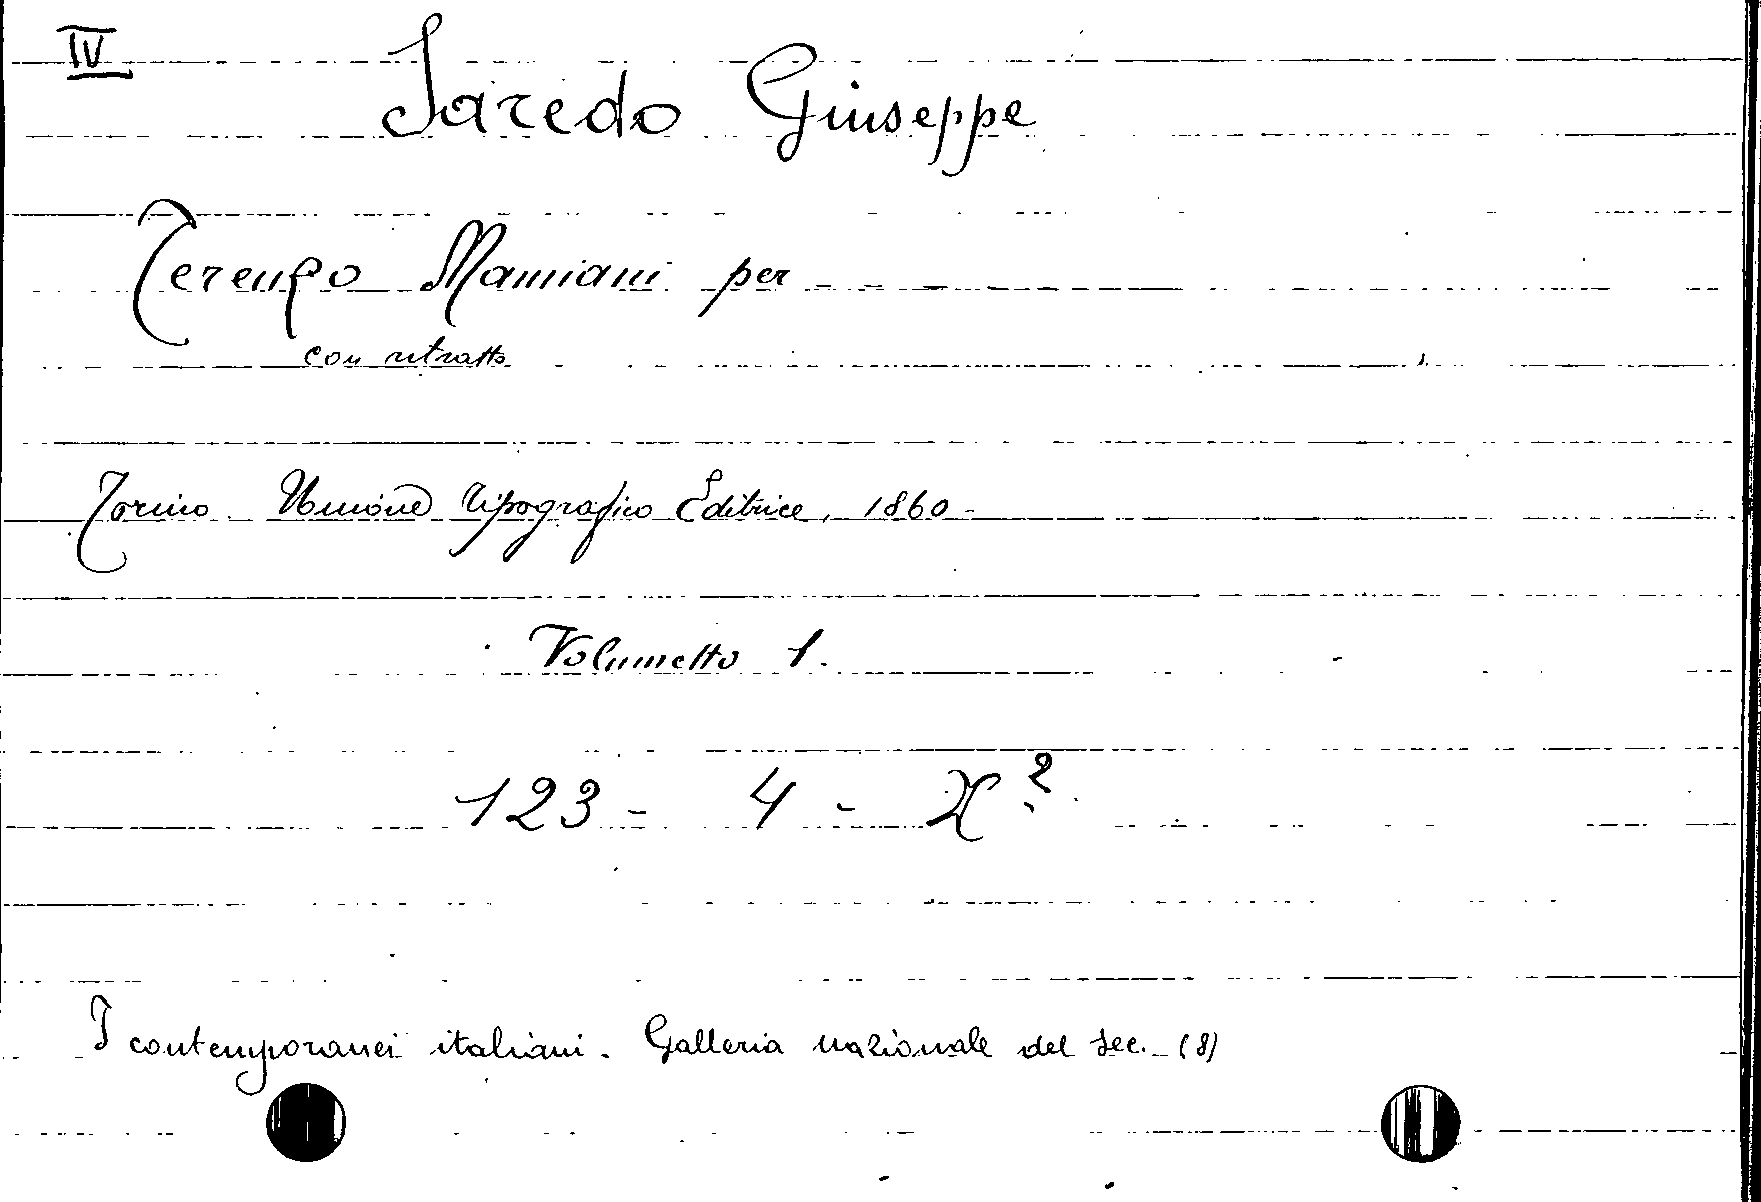 IV
Saredo Giuseppe
Terenzo Mamiani per
con ritratto
Torino. Unione Tipografico Editrice, 1860-
Volumetto 1.
123- 4 - X²
I contemporanei italiani. Galleria nazionale del sec. (8)